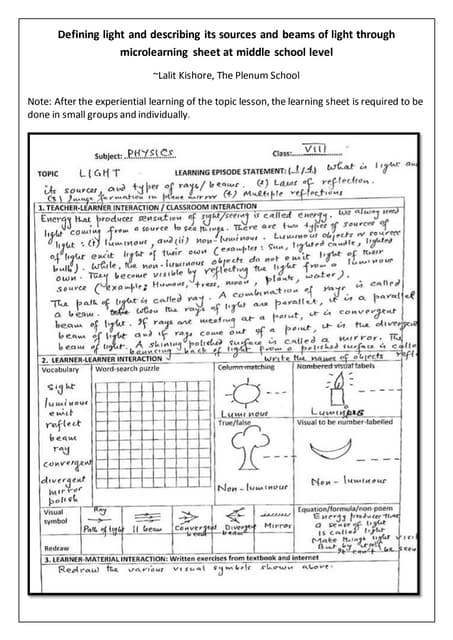 Defining light and describing its sources and beams of light through
microlearning sheet at middle school level
~Lalit Kishore, The Plenum School
Note: After the experiential learning of the topic lesson, the learning sheet is required to be
done in small groups and individually.
Subject: PHYSICS Class: VIII
TOPIC LIGHT LEARNING EPISODE STATEMENT: (1) What is light and
its sources, and types of rays/beams. (2) Laws of reflection.
(3) Image formation in plane mirror (4) Multiple reflections
1. TEACHER-LEARNER INTERACTION / CLASSROOM INTERACTION
Energy that produces sensation of sight/seeing is called energy. We always need
light coming from a source to see things. There are two types of sources of
light: (i) luminous, and (ii) non-luminous. Luminous objects or sources
of light emit light of their own (examples: Sun, lighted candle, lighted
bulb). While, the non-luminous objects do not emit light of their
own. They become visible by reflecting the light from a luminous
source (example: Humans, trees, moon, plants, water).
The path of light is called ray. A combination of rays is called
a beam. When the rays of light are parallel, it is a parallel
beam of light. If rays are meeting at a point, it is convergent
beam of light and if rays come out of a point, it is the divergent
beam of light. A shining/polished surface is called a mirror. The
bouncing back of light from a polished surface is called
2. LEARNER-LEARNER INTERACTION Write the names of objects
Vocabulary Word-search puzzle Column-matching Numbered visual labels
sight
luminous
emit
reflect
beam
ray
convergent
divergent
mirror
polish
Luminous Luminous
True/false Visual to be number-labelled
Non-luminous Non-luminous
Visual symbol Ray Path of light || beam Convergent beam Divergent beam Mirror
Equation/formula/non-poem
Energy producer that
a sense of light
is called light
Make things light visi
But by itself
It can't be seen
Redraw
3. LEARNER-MATERIAL INTERACTION: Written exercises from textbook and internet
Redraw the various visual symbols shown above.